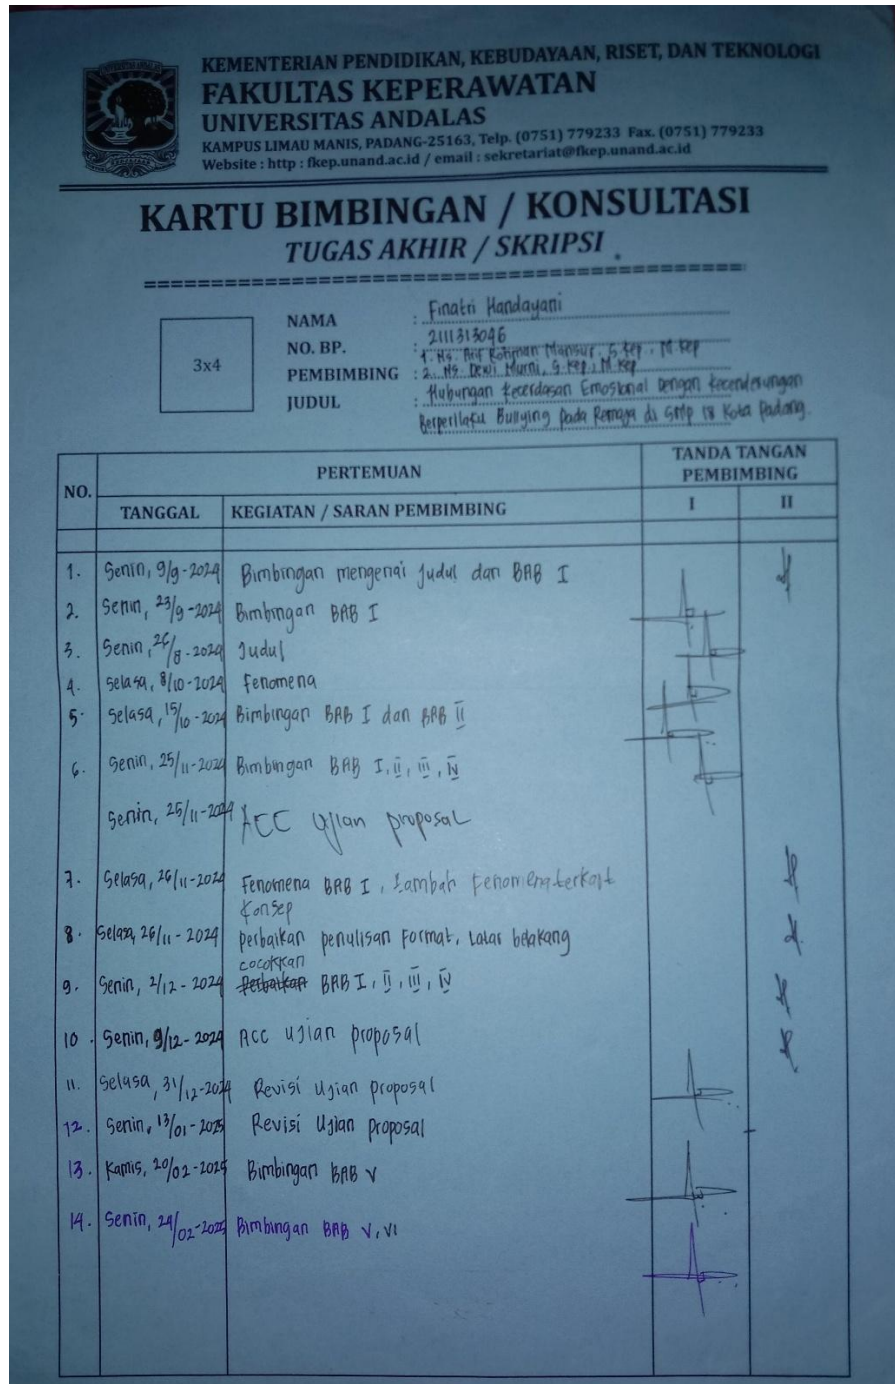 KEMENTERIAN PENDIDIKAN, KEBUDAYAAN, RISET, DAN TEKNOLOGI
FAKULTAS KEPERAWATAN
UNIVERSITAS ANDALAS
KAMPUS LIMAU MANIS, PADANG-25163, Telp. (0751) 779233 Fax. (0751) 779233
Website : http : fkep.unand.ac.id / email : sekretariat@fkep.unand.ac.id
KARTU BIMBINGAN / KONSULTASI
TUGAS AKHIR / SKRIPSI
3x4
NAMA : Finatri Handayani
NO. BP. : 2111313046
PEMBIMBING : 1. Ns. Arif Rohman Mansur, S.Kep., M.Kep
2. Ns. Dewi Murni, S.Kep., M.Kep
JUDUL : Hubungan Kecerdasan Emosional Dengan Kecenderungan
Berperilaku Bullying pada Remaja di SMP 18 Kota Padang.
NO. PERTEMUAN TANDA TANGAN PEMBIMBING
TANGGAL KEGIATAN / SARAN PEMBIMBING I II
1. Senin, 9/9-2024 Bimbingan mengenai Judul dan BAB I
2. Senin, 23/9-2024 Bimbingan BAB I
3. Senin, 26/8-2024 Judul
4. Selasa, 8/10-2024 Fenomena
5. Selasa, 15/10-2024 Bimbingan BAB I dan BAB II
6. Senin, 25/11-2024 Bimbingan BAB I, II, III, IV
Senin, 25/11-2024 ACC Ujian proposal
7. Selasa, 26/11-2024 Fenomena BAB I, tambah Fenomena terkait
Konsep
8. Selasa, 26/11-2024 perbaikan penulisan Format, Latar belakang
cocokkan
9. Senin, 2/12-2024 Perbaikan BAB I, II, III, IV
10. Senin, 9/12-2024 Acc ujian proposal
11. Selasa, 31/12-2024 Revisi Ujian proposal
12. Senin, 13/01-2025 Revisi Ujian proposal
13. Kamis, 20/02-2025 Bimbingan BAB V
14. Senin, 24/02-2025 Bimbingan BAB V, VI